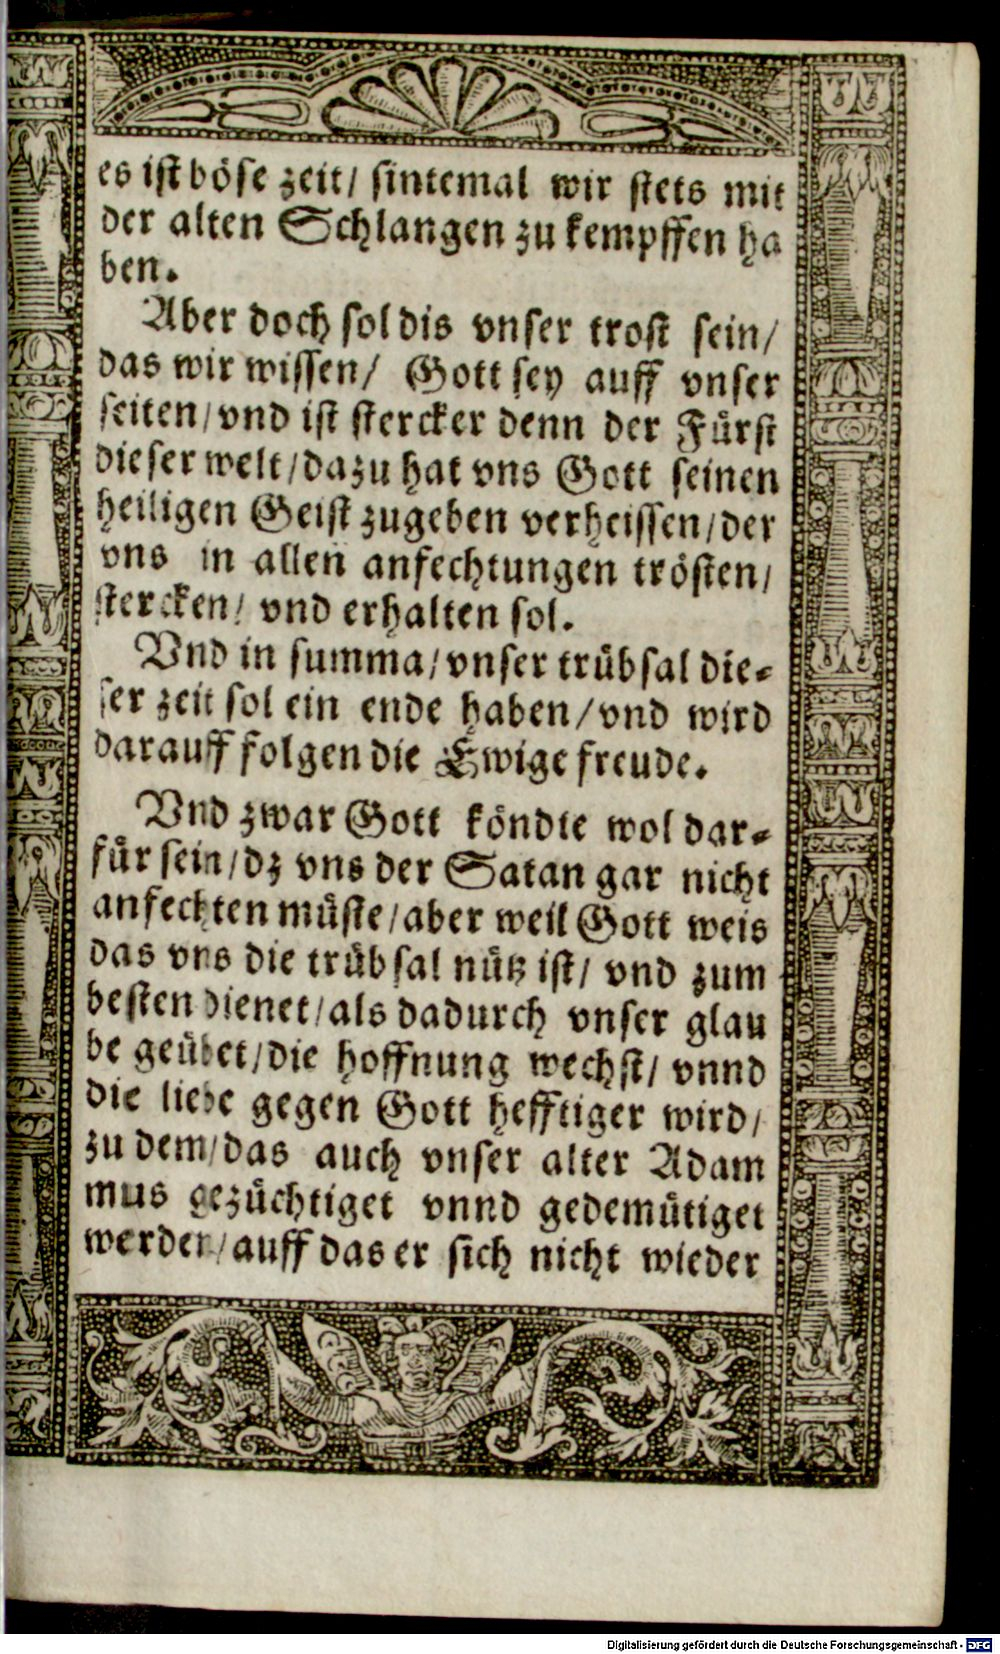 es ist böse zeit/ sintemal wir stets mit
der alten Schlangen zu kempffen ha
ben.
Aber doch sol dis vnser trost sein/
das wir wissen/ Gott sey auff vnser
seiten/vnd ist stercker denn der Fürst
dieser welt/dazu hat vns Gott seinen
heiligen Geist zugeben verheissen/der
vns in allen anfechtungen trösten/
stercken/ vnd erhalten sol.
Vnd in summa/vnser trübsal die-
ser zeit sol ein ende haben/vnd wird
darauff folgen die Ewige freude.
Vnd zwar Gott köndte wol dar-
für sein/dz vns der Satan gar nicht
anfechten müste/aber weil Gott weis
das vns die trübsal nütz ist/ vnd zum
besten dienet/als dadurch vnser glau
be geübet/die hoffnung wechst/ vnnd
die liebe gegen Gott hefftiger wird/
zu dem/das auch vnser alter Adam
mus gezüchtiget vnnd gedemütiget
werden/auff das er sich nicht wieder
Digitalisierung gefördert durch die Deutsche Forschungsgemeinschaft - DFG